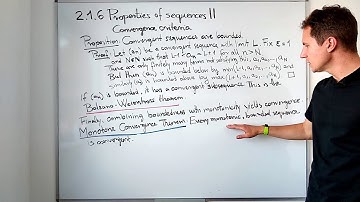 2.1.6 Properties of sequences II
Convergence criteria
Proposition: Convergent sequences are bounded.
Proof: Let (aₙ) be a convergent sequence with limit L. Fix ε=1
and N∈ℕ such that
for all n>N.
There are only finitely many terms not satisfying this, a₁, a₂, ..., a_N
But then (aₙ) is bounded below by
and is bounded above by
If (aₙ) is bounded, it has a convergent subsequence. This is the
Bolzano-Weierstrass theorem
Finally, combining boundedness with monotonicity yields convergence.
Monotone Convergence Theorem: Every monotonic, bounded sequence
is convergent.